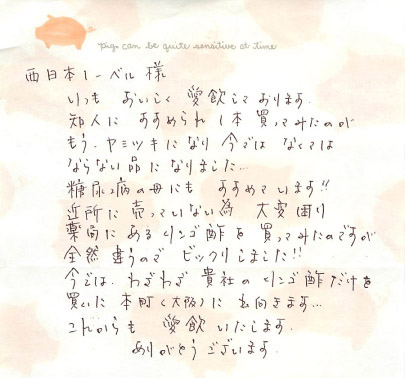 pig can be quite sensitive at time
西日本ノーベル 様
いつも おいしく 愛飲しております.
知人に すすめられ 1本 買ってみたのが
もう. ヤミツキになり 今では なくては
ならない品になりました…
糖尿病の母にも すすめています!!
近所に 売っていない為 大変困り
薬局に あるリンゴ酢を 買ってみたのですが
全然 違うので ビックリしました!!
今では. わざわざ 貴社の リンゴ酢だけを
買いに 本町(大阪)に 出向きます…
これからも 愛飲 いたします.
ありがとう ございます.